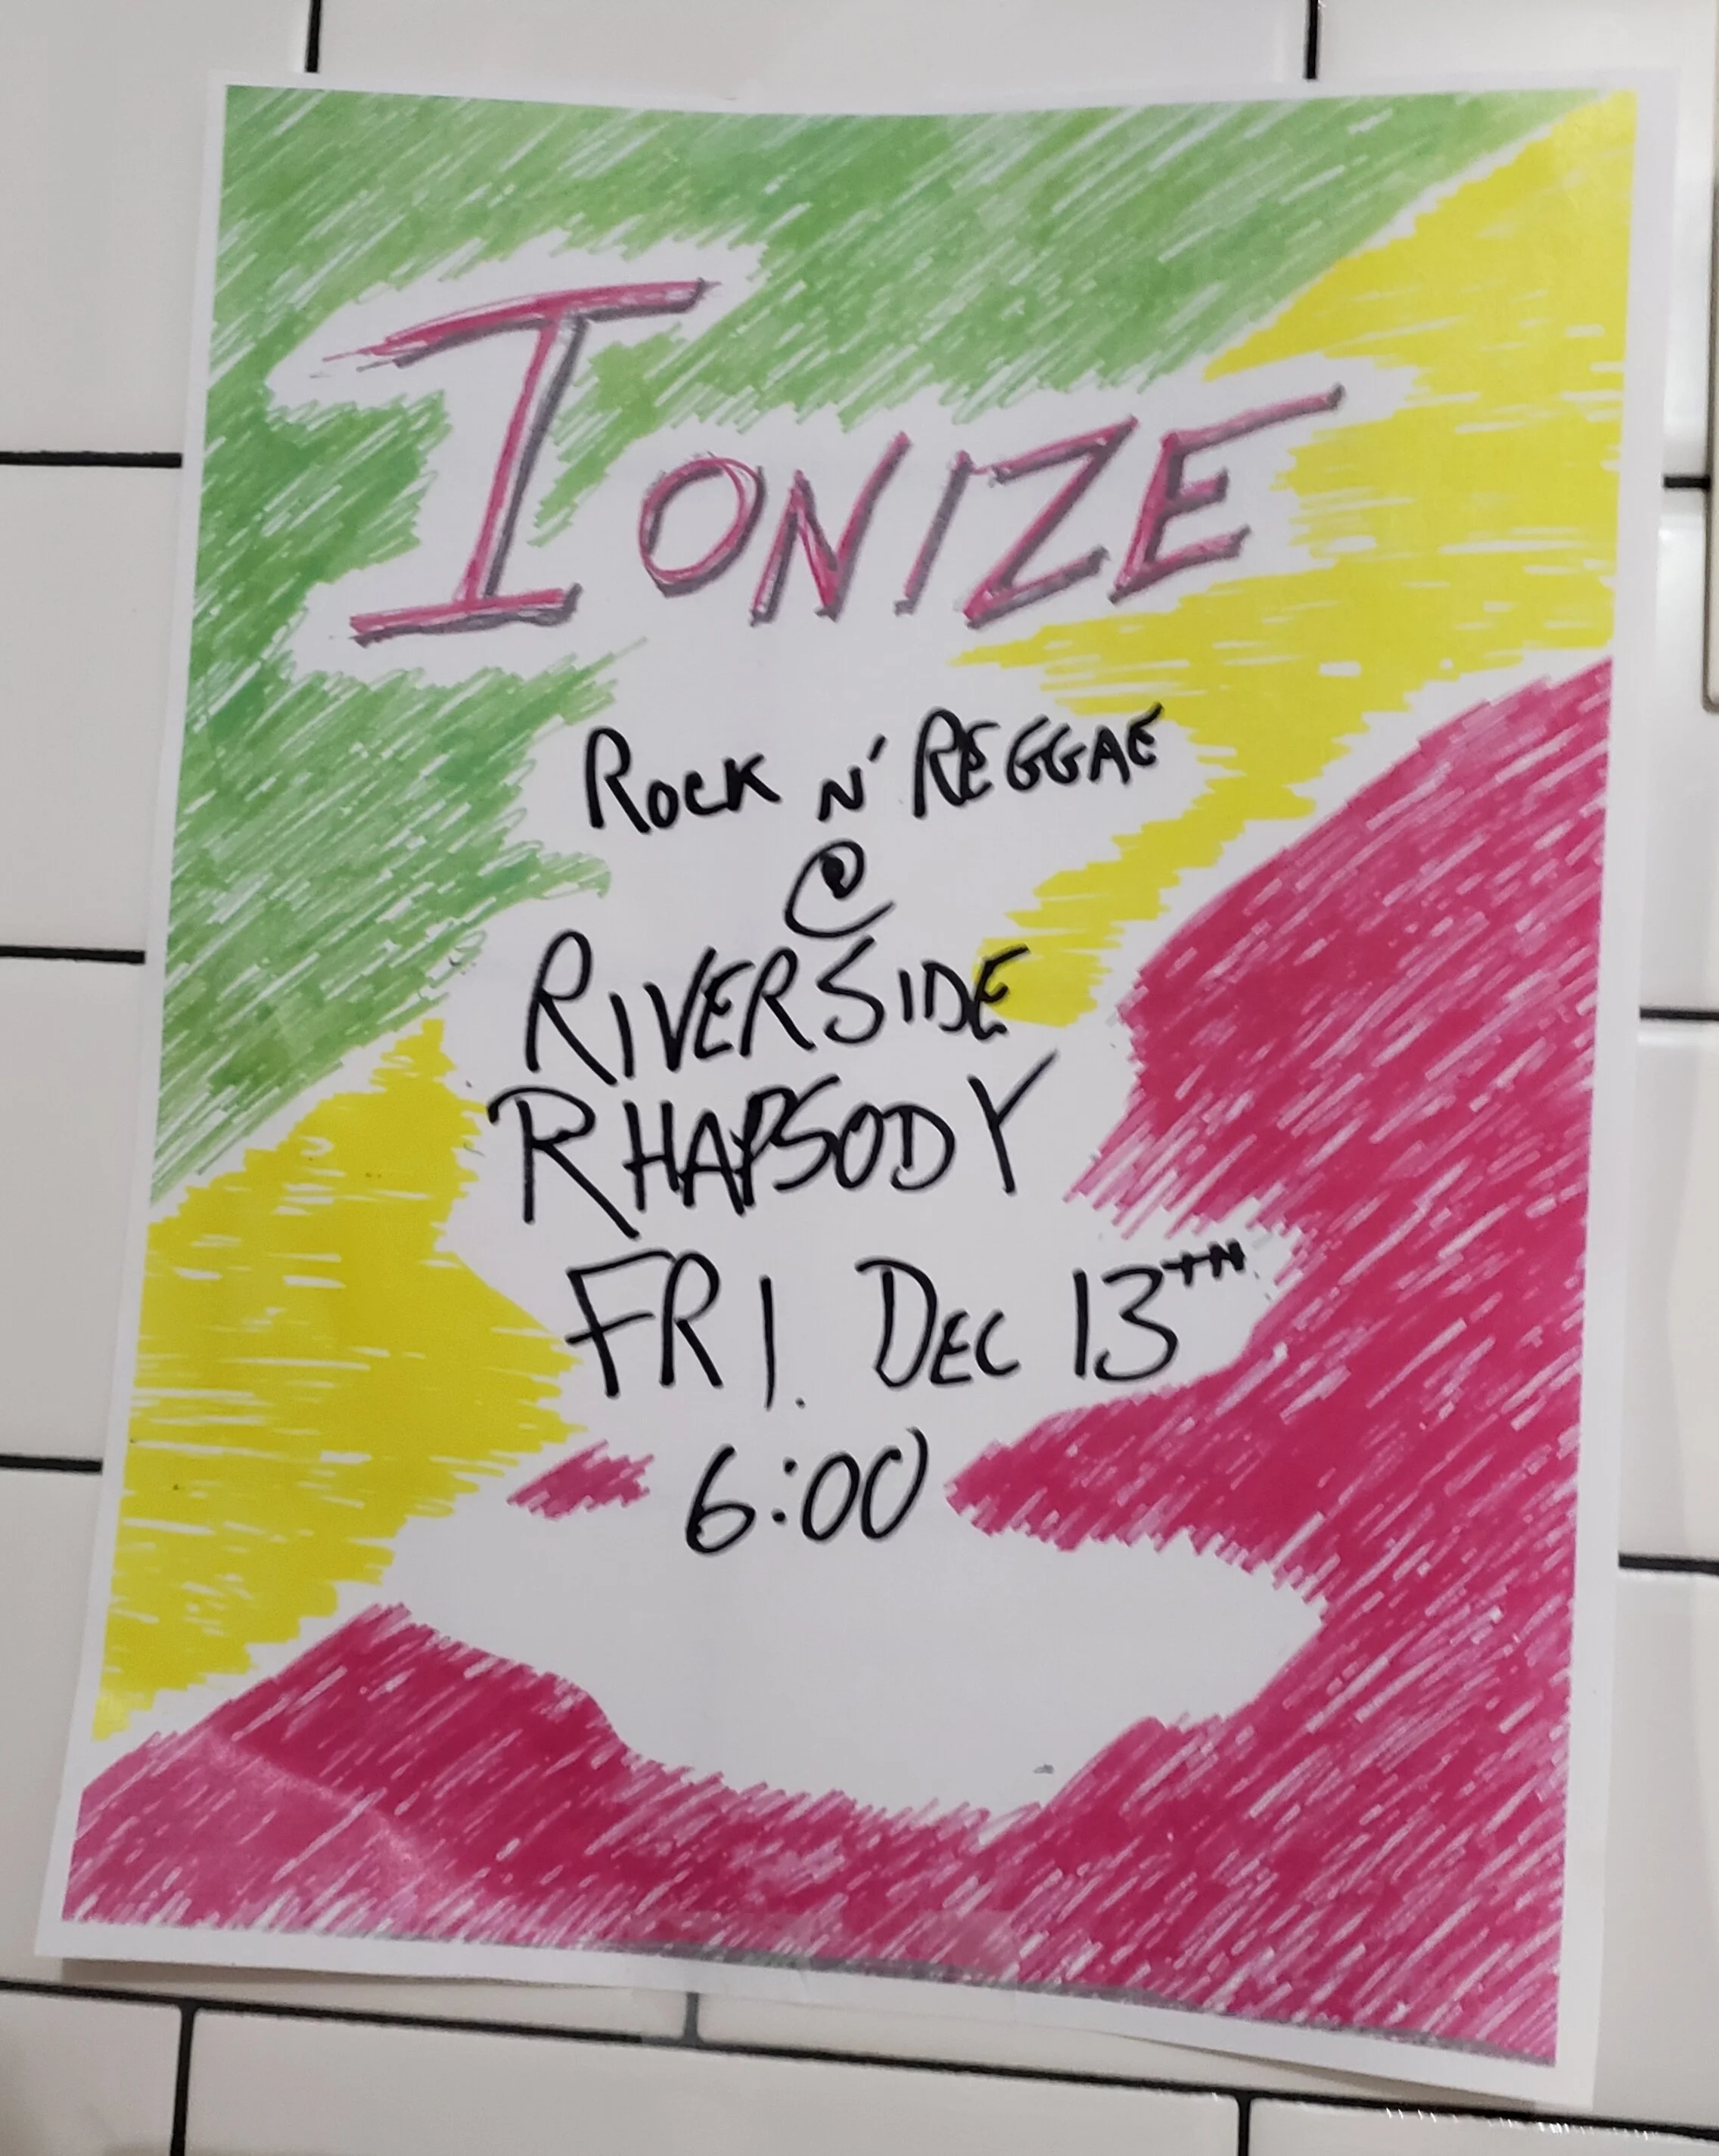 IONIZE
ROCK N' REGGAE
@
RIVERSIDE
RHAPSODY
FRI. DEC 13TH
6:00